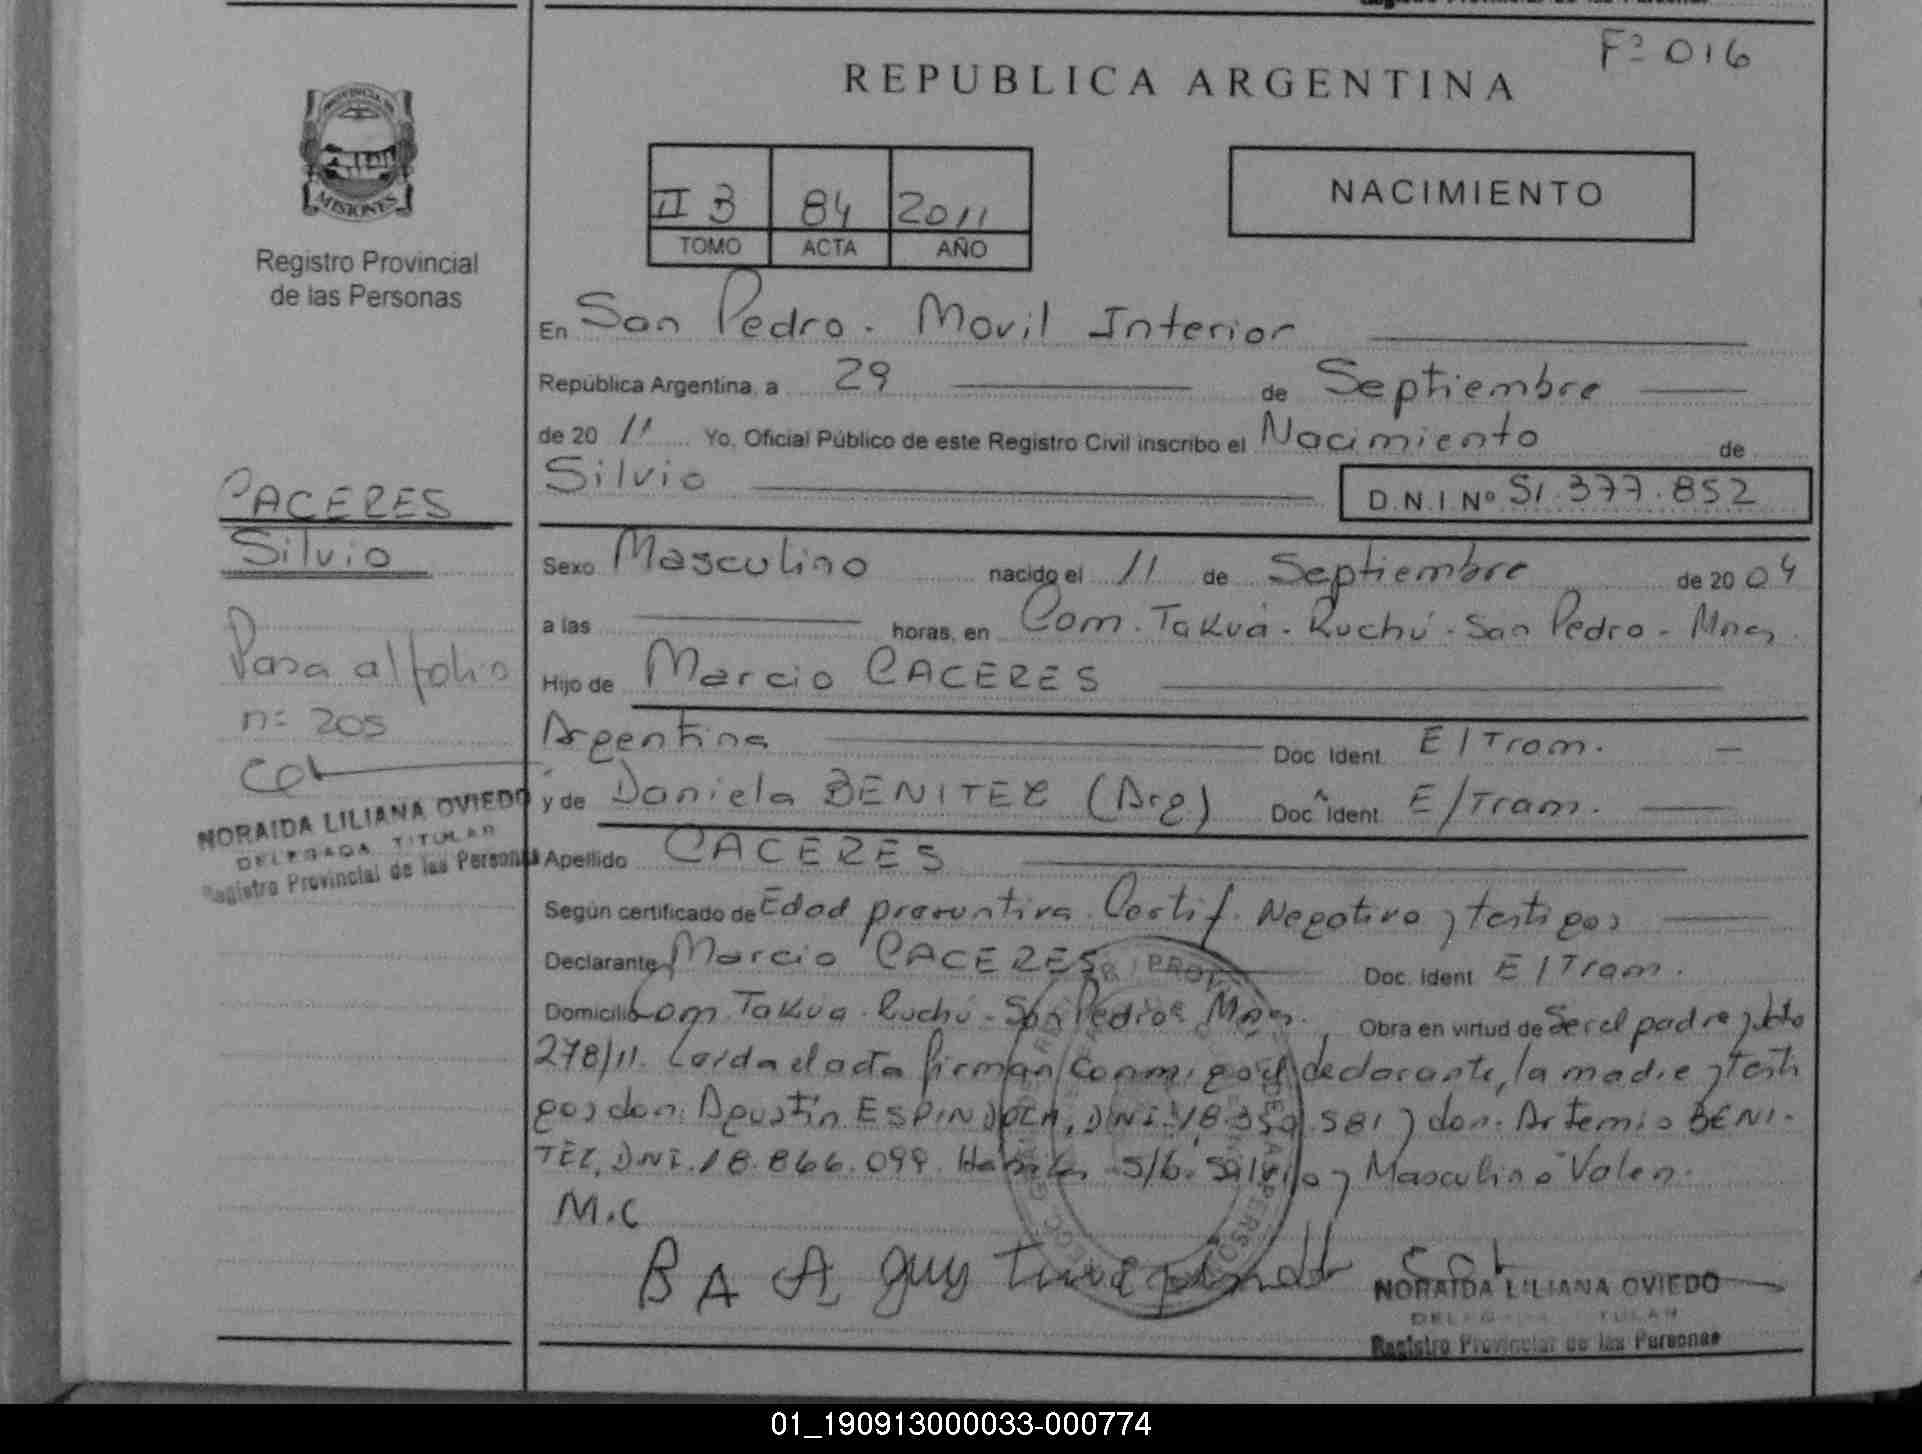 Fº 016
REPUBLICA ARGENTINA
PROVINCIA DE
MISIONES
Registro Provincial
de las Personas
II B 84 2011
TOMO ACTA AÑO
NACIMIENTO
En San Pedro - Movil Interior
República Argentina, a 29 de Septiembre
de 20 11 Yo, Oficial Público de este Registro Civil inscribo el Nacimiento de
Silvio
D.N.I. Nº 51.377.852
CACERES
Silvio
Pasa al folio
nº 205
NORAIDA LILIANA OVIEDO
DELEGADA TITULAR
Registro Provincial de las Personas
Sexo Masculino nacido el 11 de Septiembre de 20 04
a las horas, en Com. Takuá - Ruchú - San Pedro - Mnes.
Hijo de Marcio CACERES
Argentina Doc. Ident. E/Tram.
y de Daniela BENITEZ (Arg) Doc. Ident. E/Tram.
Apellido CACERES
Según certificado de Edad presuntiva. Certif. Negativo y testigos
Declarante Marcio CACERES Doc. Ident. E/Tram.
Domicilio Com. Takua - Ruchú - San Pedro - Mnes. Obra en virtud de Ser el padre y
278/11. Leída el acta firman conmigo el declarante, la madre y testi
gos don: Agustín ESPINDOLA, DNI. 18.350.581 y don: Artemio BENI-
TEZ, DNI. 18.866.099. S/b: Silvio y Masculino Valen.
M.C
B A A
NORAIDA LILIANA OVIEDO
DELEGADA TITULAR
Registro Provincial de las Personas
01_190913000033-000774